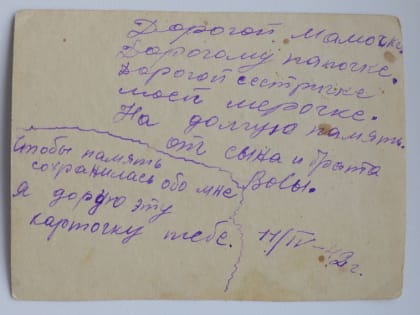 Дорогой мамочке.
Дорогому папочке.
Дорогой сестричке
моей мерочке.
На долгую память.
от сына и брата
Вовы.
Чтобы память
сохранилась обо мне
Я дорую эту
карточку тебе.
11/IV-42г.